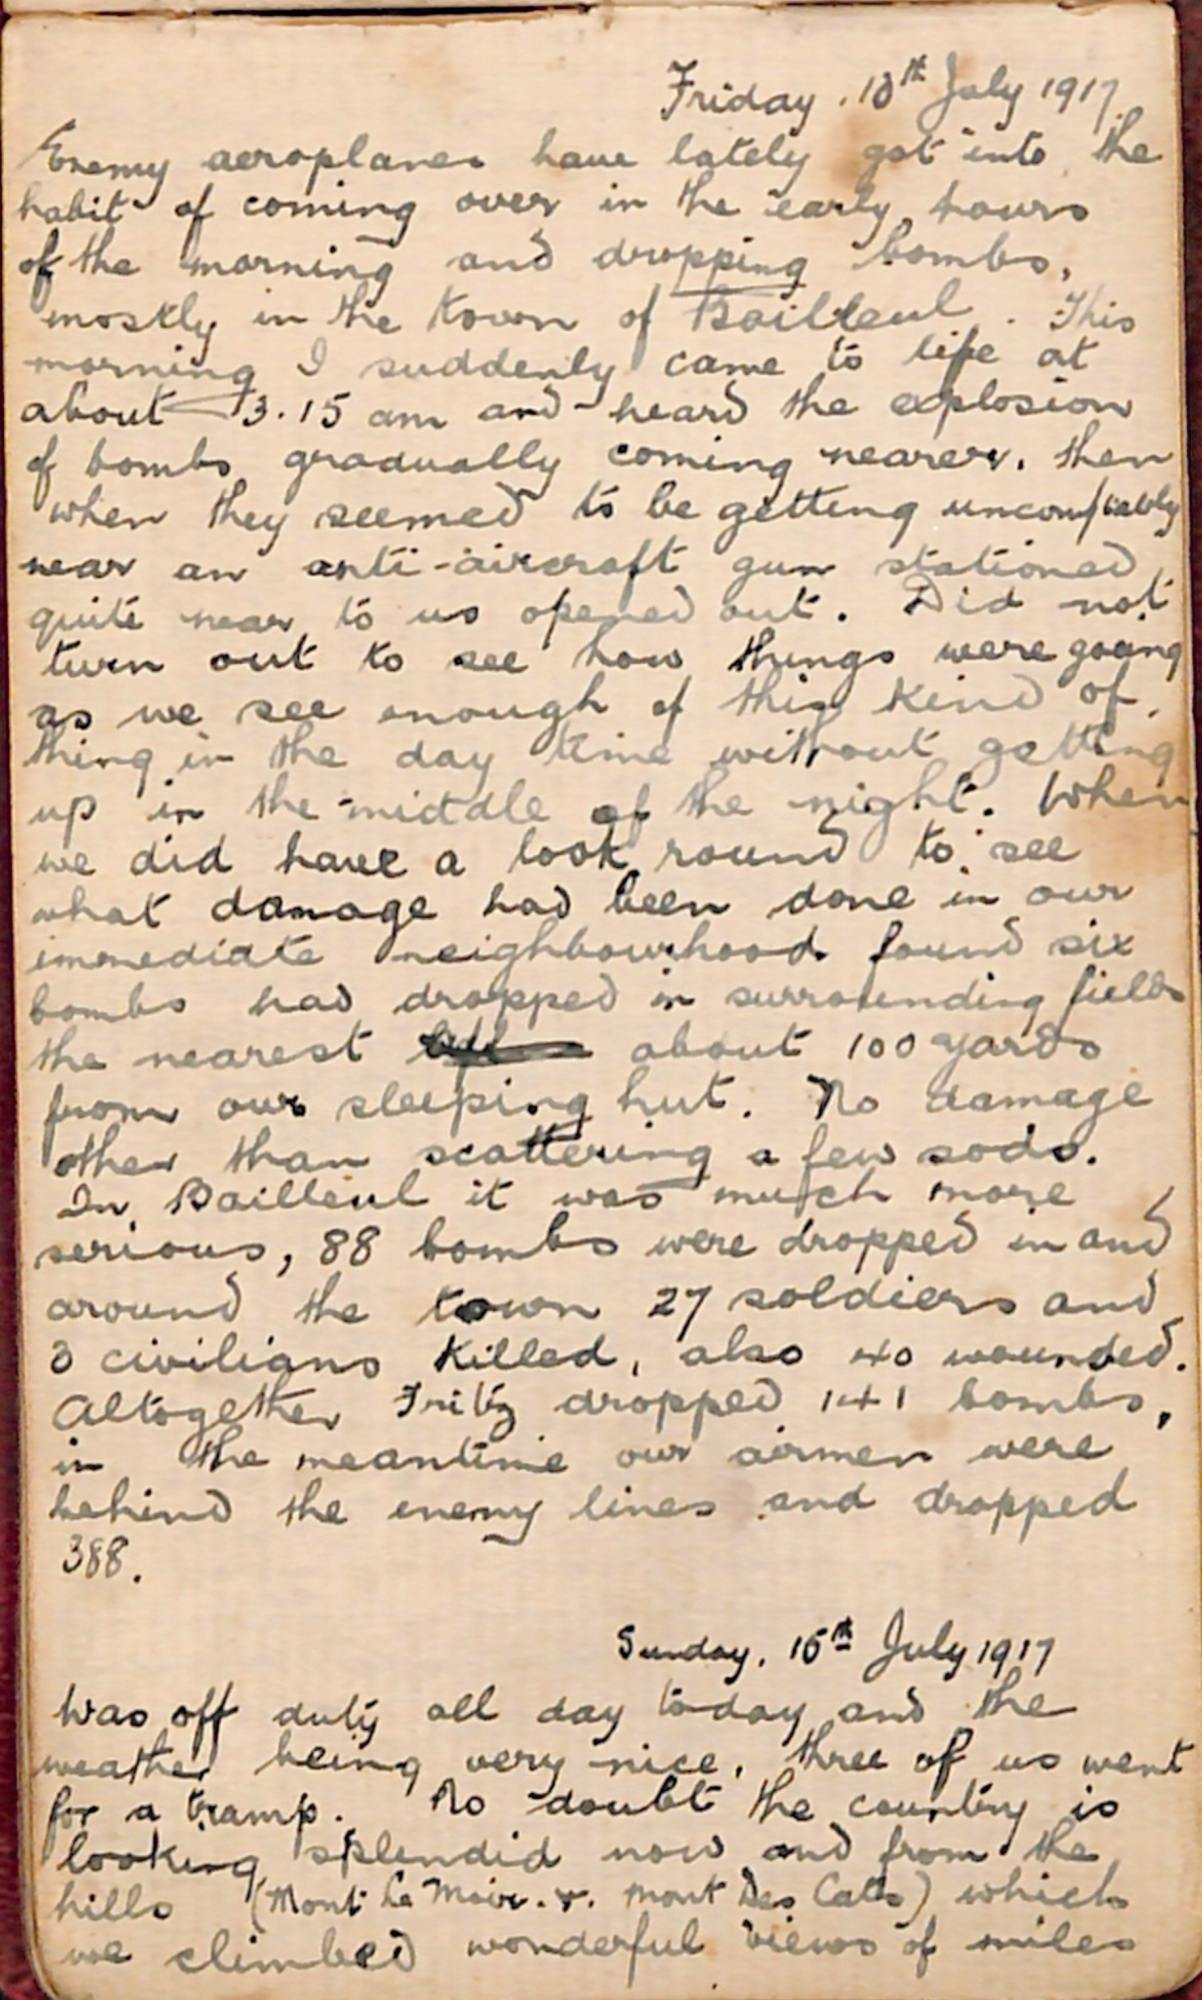 Friday, 13th July 1917.
Enemy aeroplanes have lately got into the
habit of coming over in the early hours
of the morning and dropping bombs,
mostly in the town of Bailleul. This
morning I suddenly came to life at
about 3.15 am and heard the explosion
of bombs gradually coming nearer. then
when they seemed to be getting uncomftably
near an anti-aircraft gun stationed
quite near to us opened out. Did not
turn out to see how things were going
as we see enough of this kind of
thing in the day time without getting
up in the middle of the night. When
we did have a look round to see
what damage had been done in our
immediate neighbourhood found six
bombs had dropped in surrounding fields
the nearest about 100 yards
from our sleeping hut. No damage
other than scattering a few sods.
In Bailleul it was much more
serious, 88 bombs were dropped in and
around the town 27 soldiers and
3 civilians killed, also 40 wounded.
Altogether Fritz dropped 141 bombs,
in the meantime our airmen were
behind the enemy lines and dropped
388.
Sunday, 15th July 1917
Was off duty all day today and the
weather being very nice, three of us went
for a tramp. No doubt the country is
looking splendid now and from the
hills (Mont Le Noir. & Mont Des Cats) which
we climbed wonderful views of miles